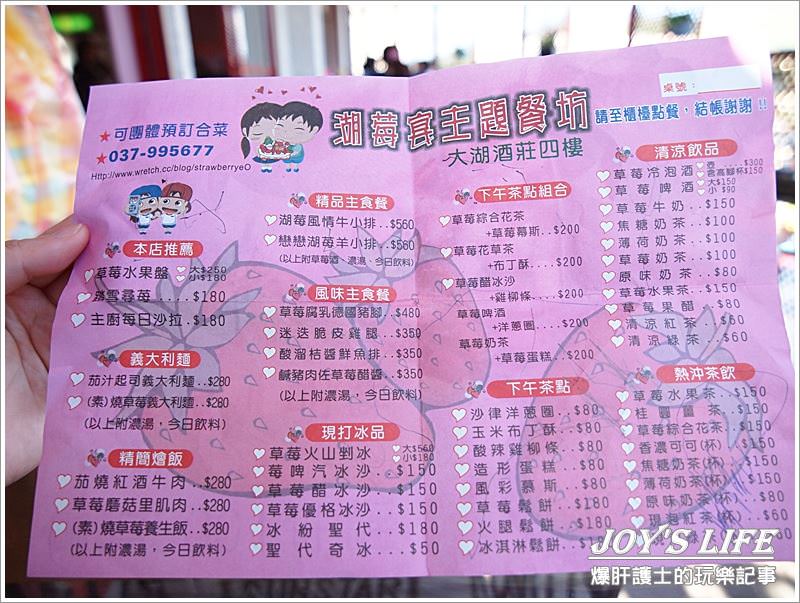 ★可團體預訂合菜
★037-995677
Http://www.wretch.cc/blog/strawberryeO
湖莓宴主題餐坊
大湖酒莊四樓
桌號：
請至櫃檯點餐，結帳謝謝!!
本店推薦
草莓水果盤 大$250 小$180
踏雪尋莓....$180
主廚每日沙拉.$180
義大利麵
茄汁起司義大利麵..$280
(素)燒草莓義大利麵..$280
(以上附濃湯，今日飲料)
精簡燴飯
茄燒紅酒牛肉..$280
草莓蘑菇里肌肉..$280
(素)燒草莓養生飯..$280
(以上附濃湯，今日飲料)
精品主食餐
湖莓風情牛小排..$560
戀戀湖莓羊小排..$560
(以上附草莓酒、濃湯、今日飲料)
風味主食餐
草莓腐乳德國豬腳..$480
迷迭脆皮雞腿..$350
酸溜桔醬鮮魚排..$350
鹹豬肉佐草莓醋醬..$350
(以上附濃湯，今日飲料)
現打冰品
草莓火山剉冰 大$560 小$180
莓啤汽冰沙..$150
草莓醋冰沙..$150
草莓優格冰沙..$150
冰紛聖代..$180
聖代奇冰...$50
下午茶點組合
草莓綜合花茶
+草莓慕斯..$200
草莓花草茶
+布丁酥....$200
草莓醋冰沙
+雞柳條...$200
草莓啤酒
+洋蔥圈...$200
草莓奶茶
+草莓蛋糕..$200
下午茶點
沙律洋蔥圈..$80
玉米布丁酥..$80
酸辣雞柳條..$80
造形蛋糕...$80
風彩慕斯...$80
草莓鬆餅...$180
火腿鬆餅...$180
冰淇淋鬆餅..$180
清涼飲品
草莓冷泡酒 壺....$300 含高腳杯$150
草莓啤酒 大$150 小 $90
草莓牛奶..$150
焦糖奶茶..$100
薄荷奶茶..$100
草莓奶茶..$100
原味奶茶..$80
草莓水果茶..$150
草莓果醋..$80
清涼紅茶..$60
清涼綠茶..$60
熱沖茶飲
草莓水果茶..$150
桂圓薑茶..$150
草莓綜合花茶..$150
香濃可可(杯)..$150
焦糖奶茶(杯)..$150
薄荷奶茶(杯)..$150
原味奶茶(杯)..$80
現泡紅茶(杯)..$60
JOY'S LIFE
爆肝護士的玩樂記事